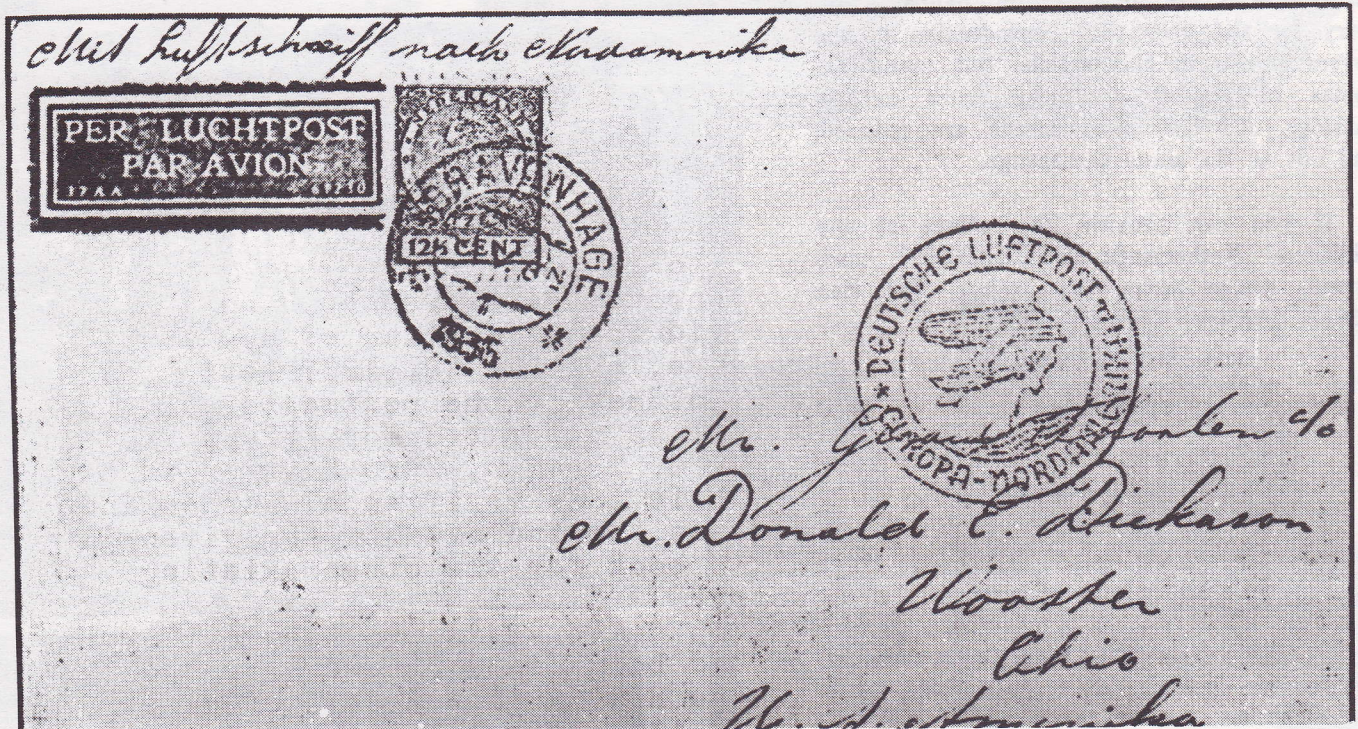 Mit Luftschiff nach Nordamerika
PER LUCHTPOST
PAR AVION
NEDERLAND
12½ CENT
'S GRAVENHAGE
1935
DEUTSCHE LUFTPOST
EUROPA-NORDAM
Mr. c/o
Mr. Donald E. Dickason
Wooster
Ohio
U. S. Amerika